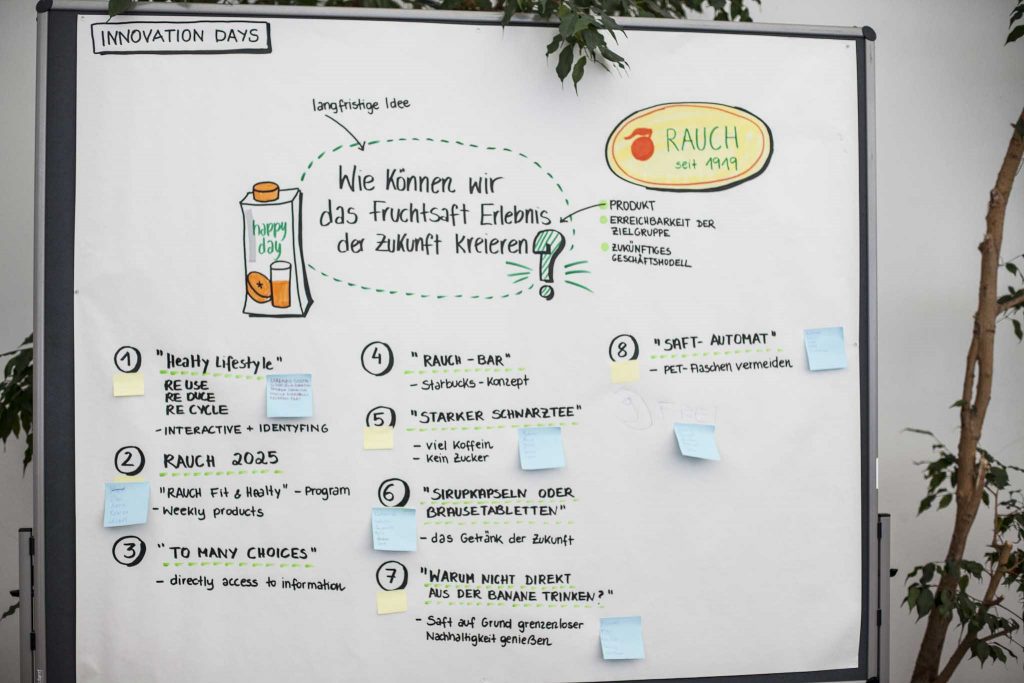 INNOVATION DAYS
langfristige Idee
Wie können wir
das Fruchtsaft Erlebnis
der Zukunft kreieren?
happy
day
RAUCH
seit 1919
PRODUKT
ERREICHBARKEIT DER
ZIELGRUPPE
ZUKÜNFTIGES
GESCHÄFTSMODELL
1 "Healty Lifestyle"
RE USE
RE DUCE
RE CYCLE
- INTERACTIVE + IDENTYFING
2 RAUCH 2025
"RAUCH Fit & Healty" - Program
- Weekly products
3 "TO MANY CHOICES"
- directly access to information
4 "RAUCH - BAR"
- Starbucks - Konzept
5 "STARKER SCHWARZTEE"
- viel Koffein
- Kein Zucker
6 "SIRUPKAPSELN ODER
BRAUSETABLETTEN"
- das Getränk der Zukunft
7 "WARUM NICHT DIREKT
AUS DER BANANE TRINKEN?"
- Saft auf Grund grenzenloser
Nachhaltigkeit genießen
8 "SAFT- AUTOMAT"
- PET- Flaschen vermeiden
9